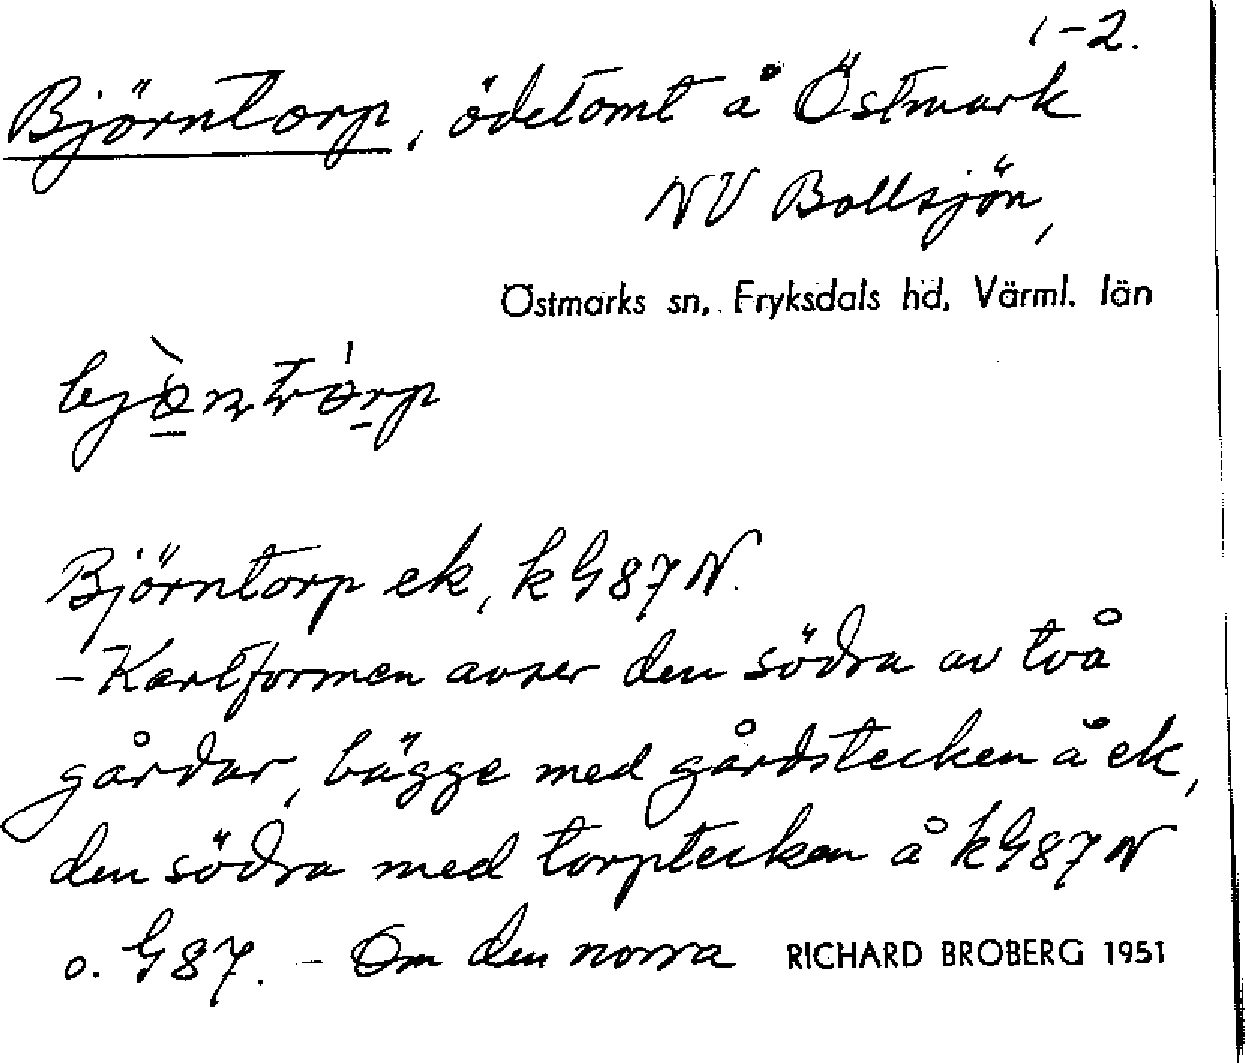 1-2.
Björntorp, ödetomt å Östmark
NV Bollsjön,
Östmarks sn, Fryksdals hd, Värml. län
Björntorp ek, kG87N.
- Kartformen avser den södra av två
gårdar, bägge med gårdstecken å ek,
den södra med torptecken å kG87N
o. G87. - Om den norra RICHARD BROBERG 1951